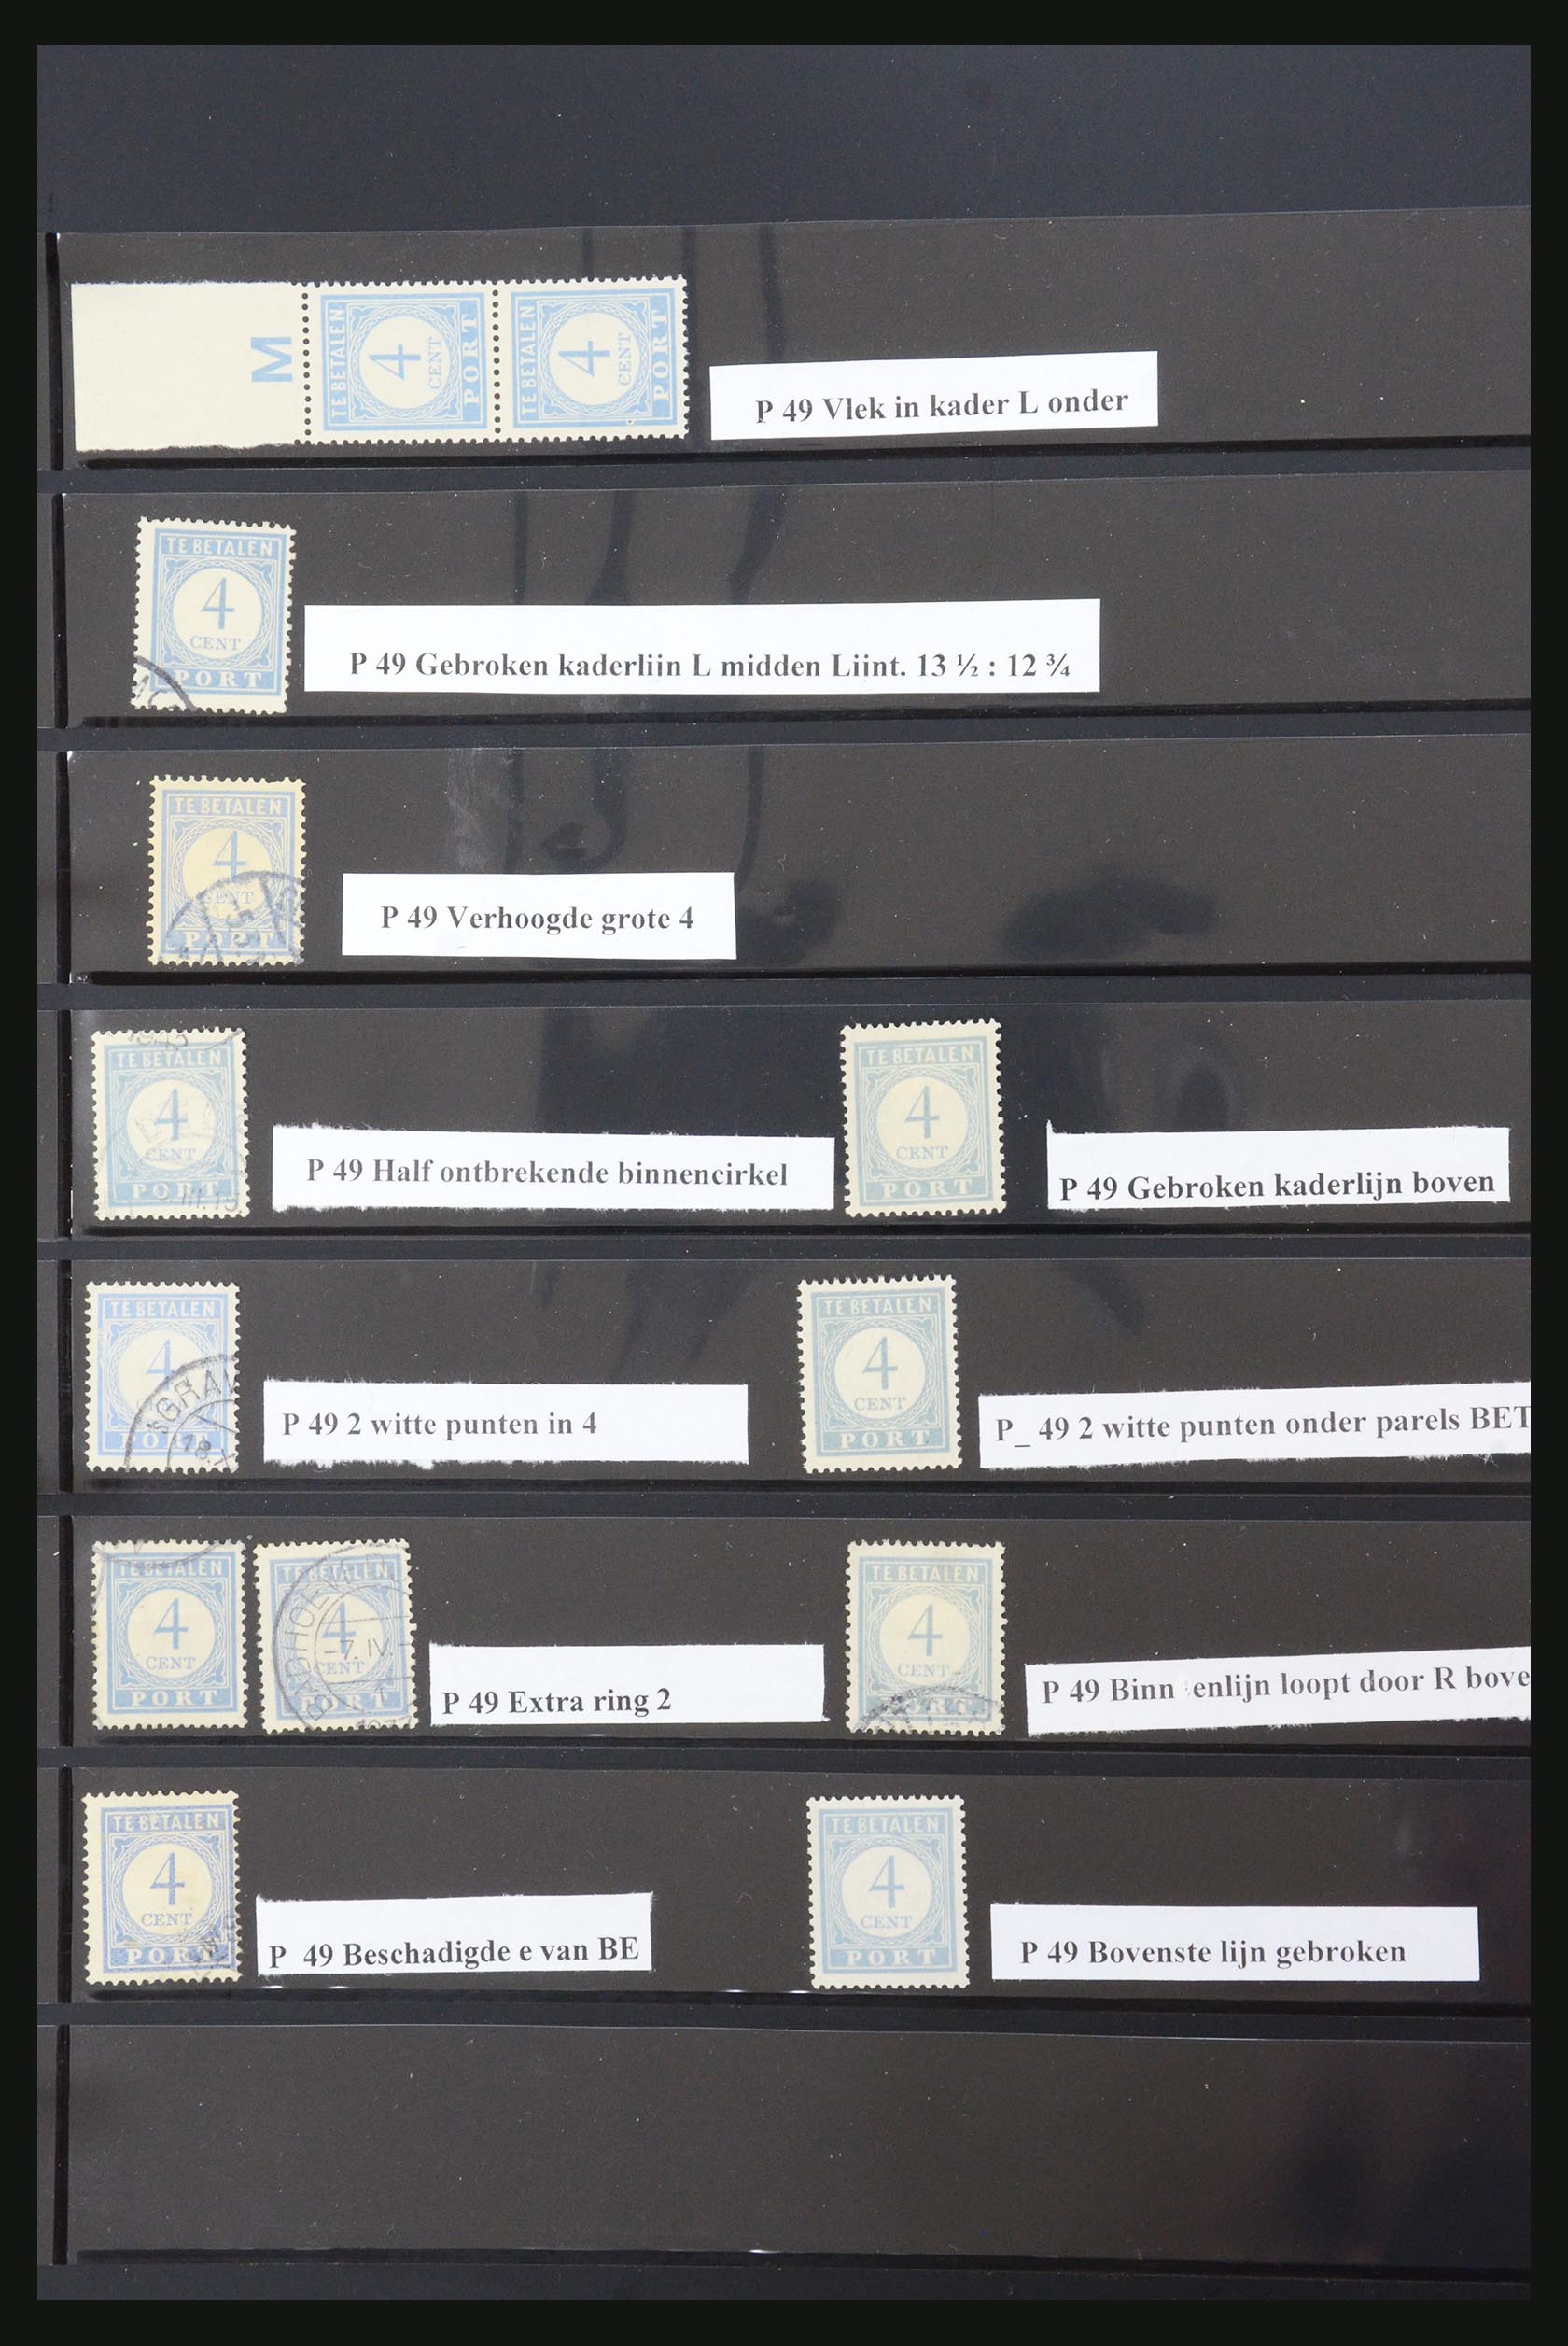 M
TE BETALEN
4
CENT
PORT
TE BETALEN
4
CENT
PORT
P 49 Vlek in kader L onder
TE BETALEN
4
CENT
PORT
P 49 Gebroken kaderlijn L midden Lijnt. 13 ½ : 12 ¾
TE BETALEN
4
CENT
PORT
P 49 Verhoogde grote 4
TE BETALEN
4
CENT
PORT
III.19
P 49 Half ontbrekende binnencirkel
TE BETALEN
4
CENT
PORT
P 49 Gebroken kaderlijn boven
TE BETALEN
4
PORT
'sGRAV
18.X
P 49 2 witte punten in 4
TE BETALEN
4
CENT
PORT
P_ 49 2 witte punten onder parels BET
TE BETALEN
4
CENT
PORT
TE BETALEN
4
CENT
PORT
BADHOEVE
-7.IV.
P 49 Extra ring 2
TE BETALEN
4
CENT
PORT
P 49 Binn enlijn loopt door R bove
TE BETALEN
4
CENT
PORT
P 49 Beschadigde e van BE
TE BETALEN
4
CENT
PORT
P 49 Bovenste lijn gebroken